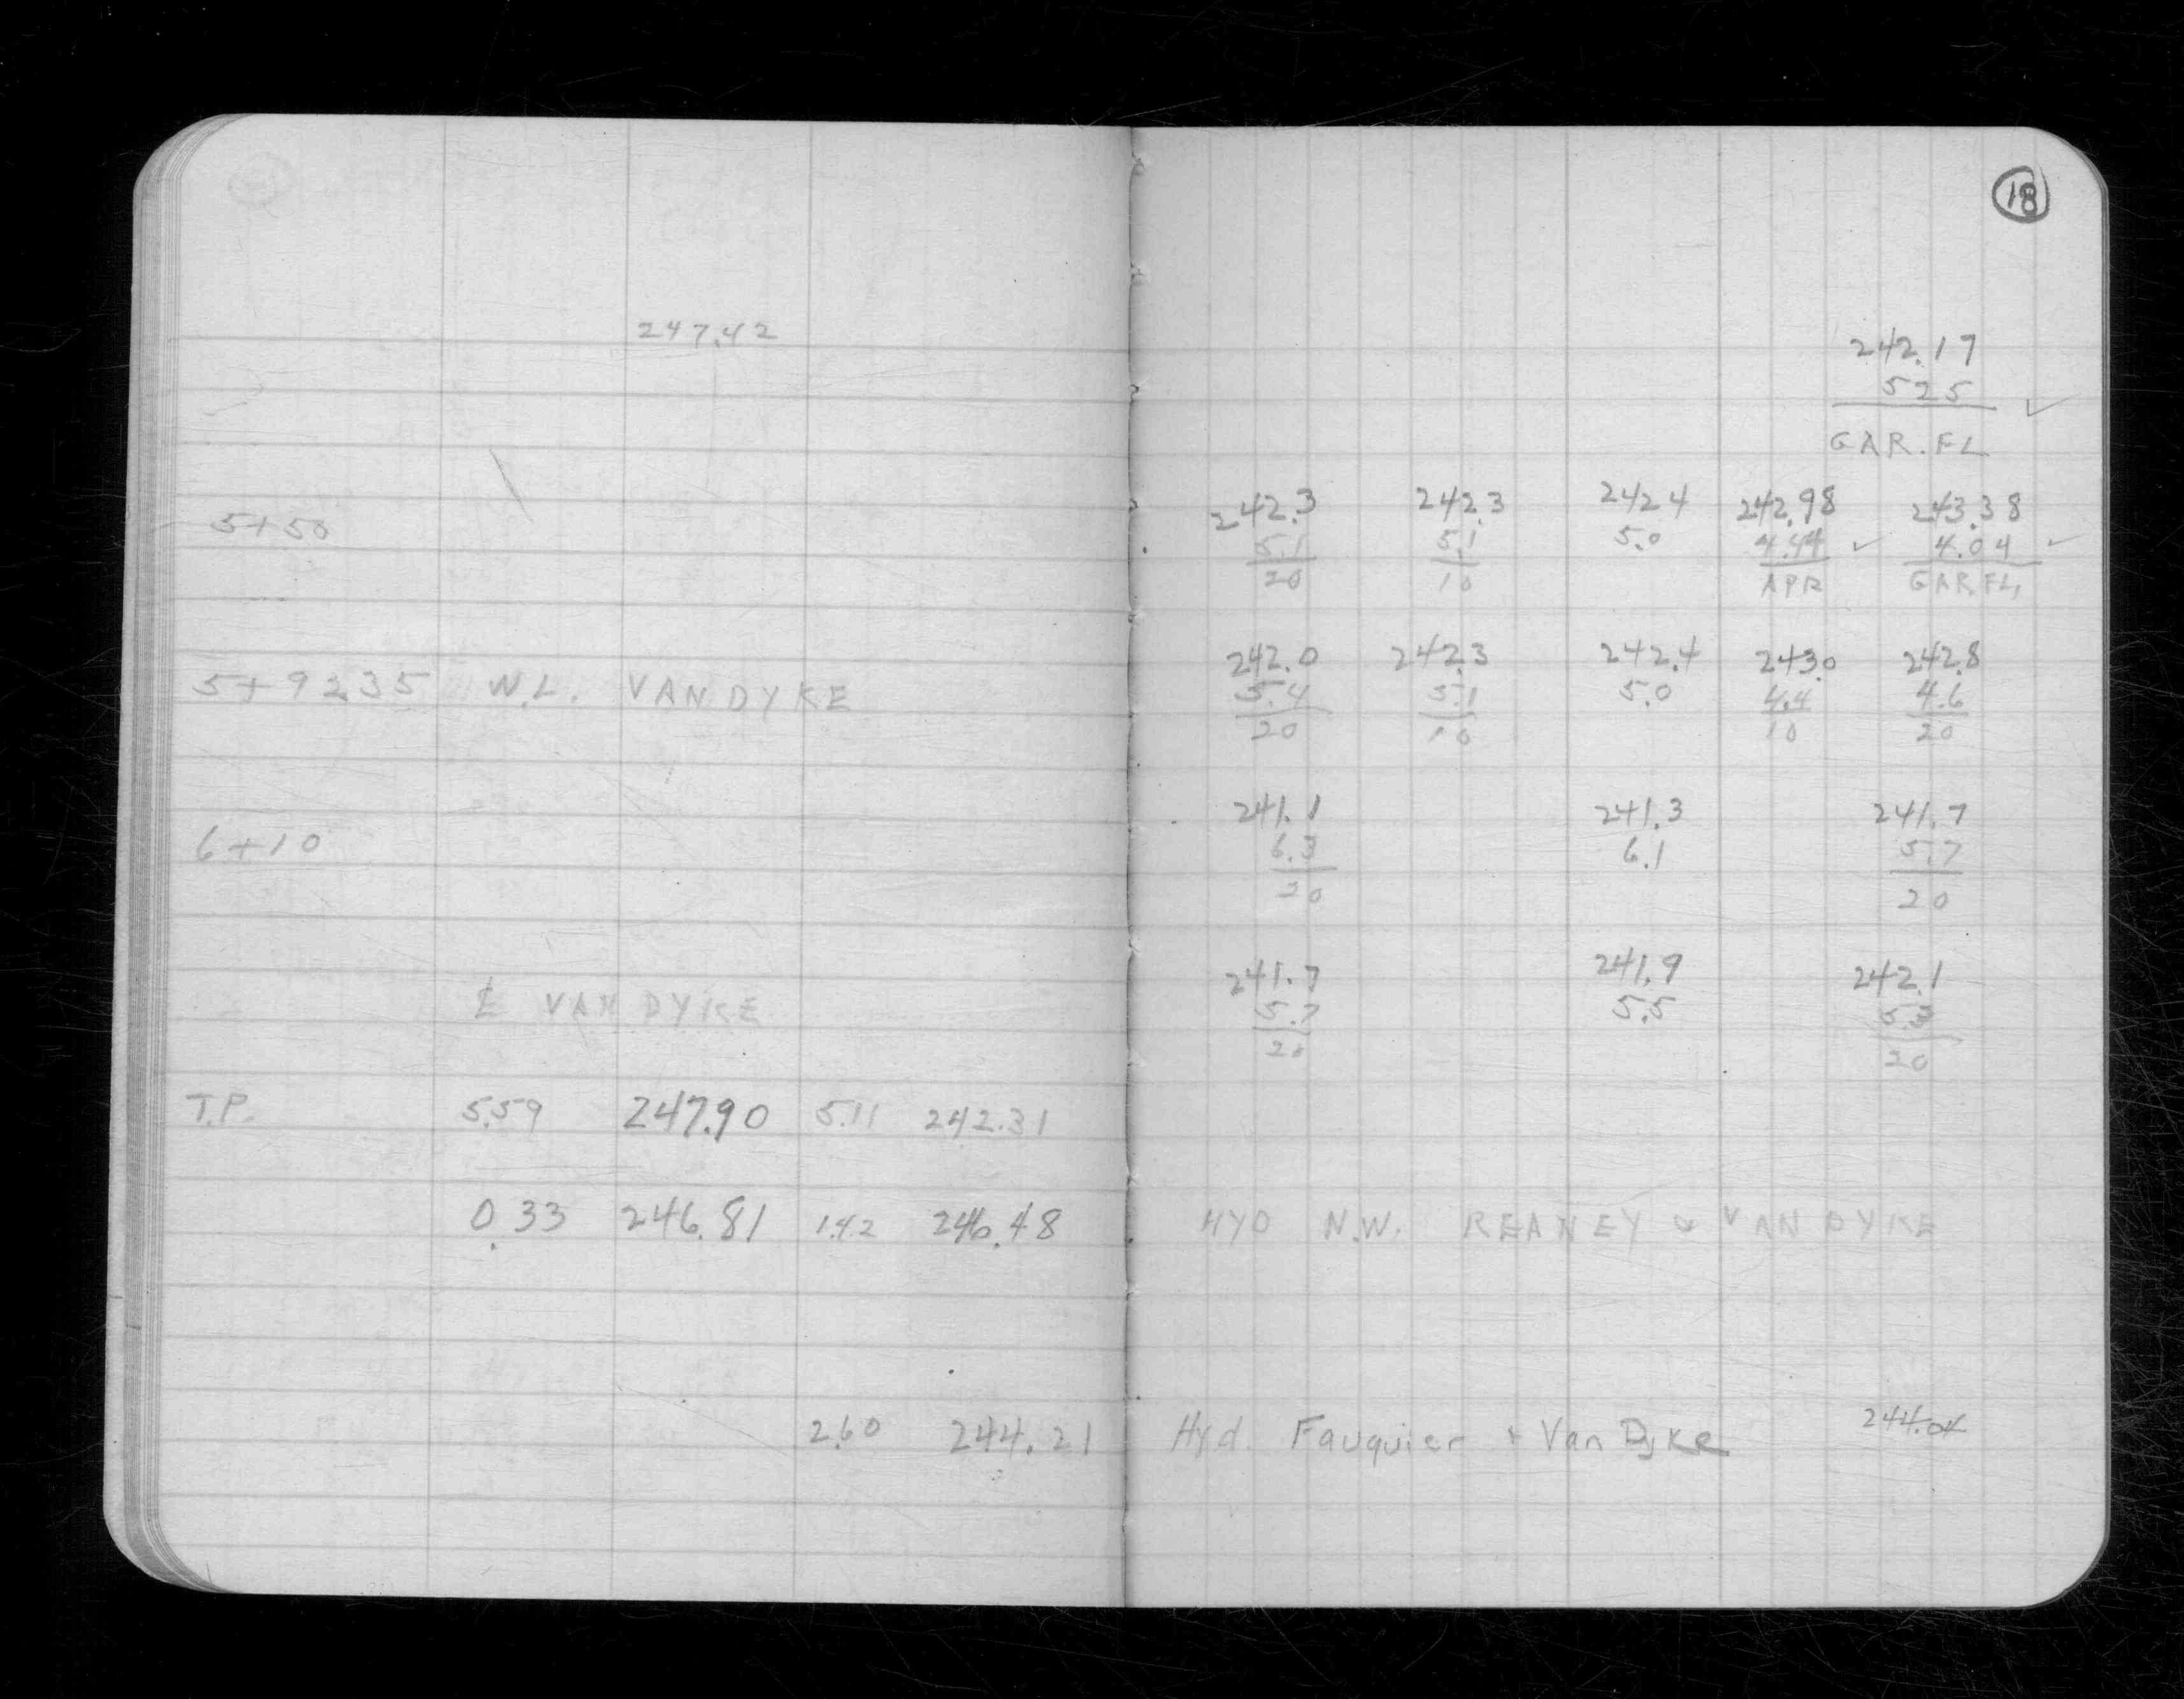 18
247.42
242.17
525
GAR. FL
242.3 242.3 242 4 242.98 243.38
5+50 5.1 5.1 5.0 4.44 ✓ 4.04 ✓
20 10 APR GAR. FL.
242.0 242.3 242.4 243.0 242.8
5+9235 W.L. VAN DYKE 5.4 5.1 5.0 4.4 4.6
20 10 10 20
241.1 241.3 241.7
6+10 6.3 6.1 5.7
20 20
241.7 241.9 242.1
℄ VAN DYKE 5.7 5.5 5.3
20 20
T.P. 5.59 247.90 5.11 242.31
0.33 246.81 1.42 246.48 HYD N.W. REANEY & VAN DYKE
2.60 244.21 Hyd. Fauquier + Van Dyke 244.04